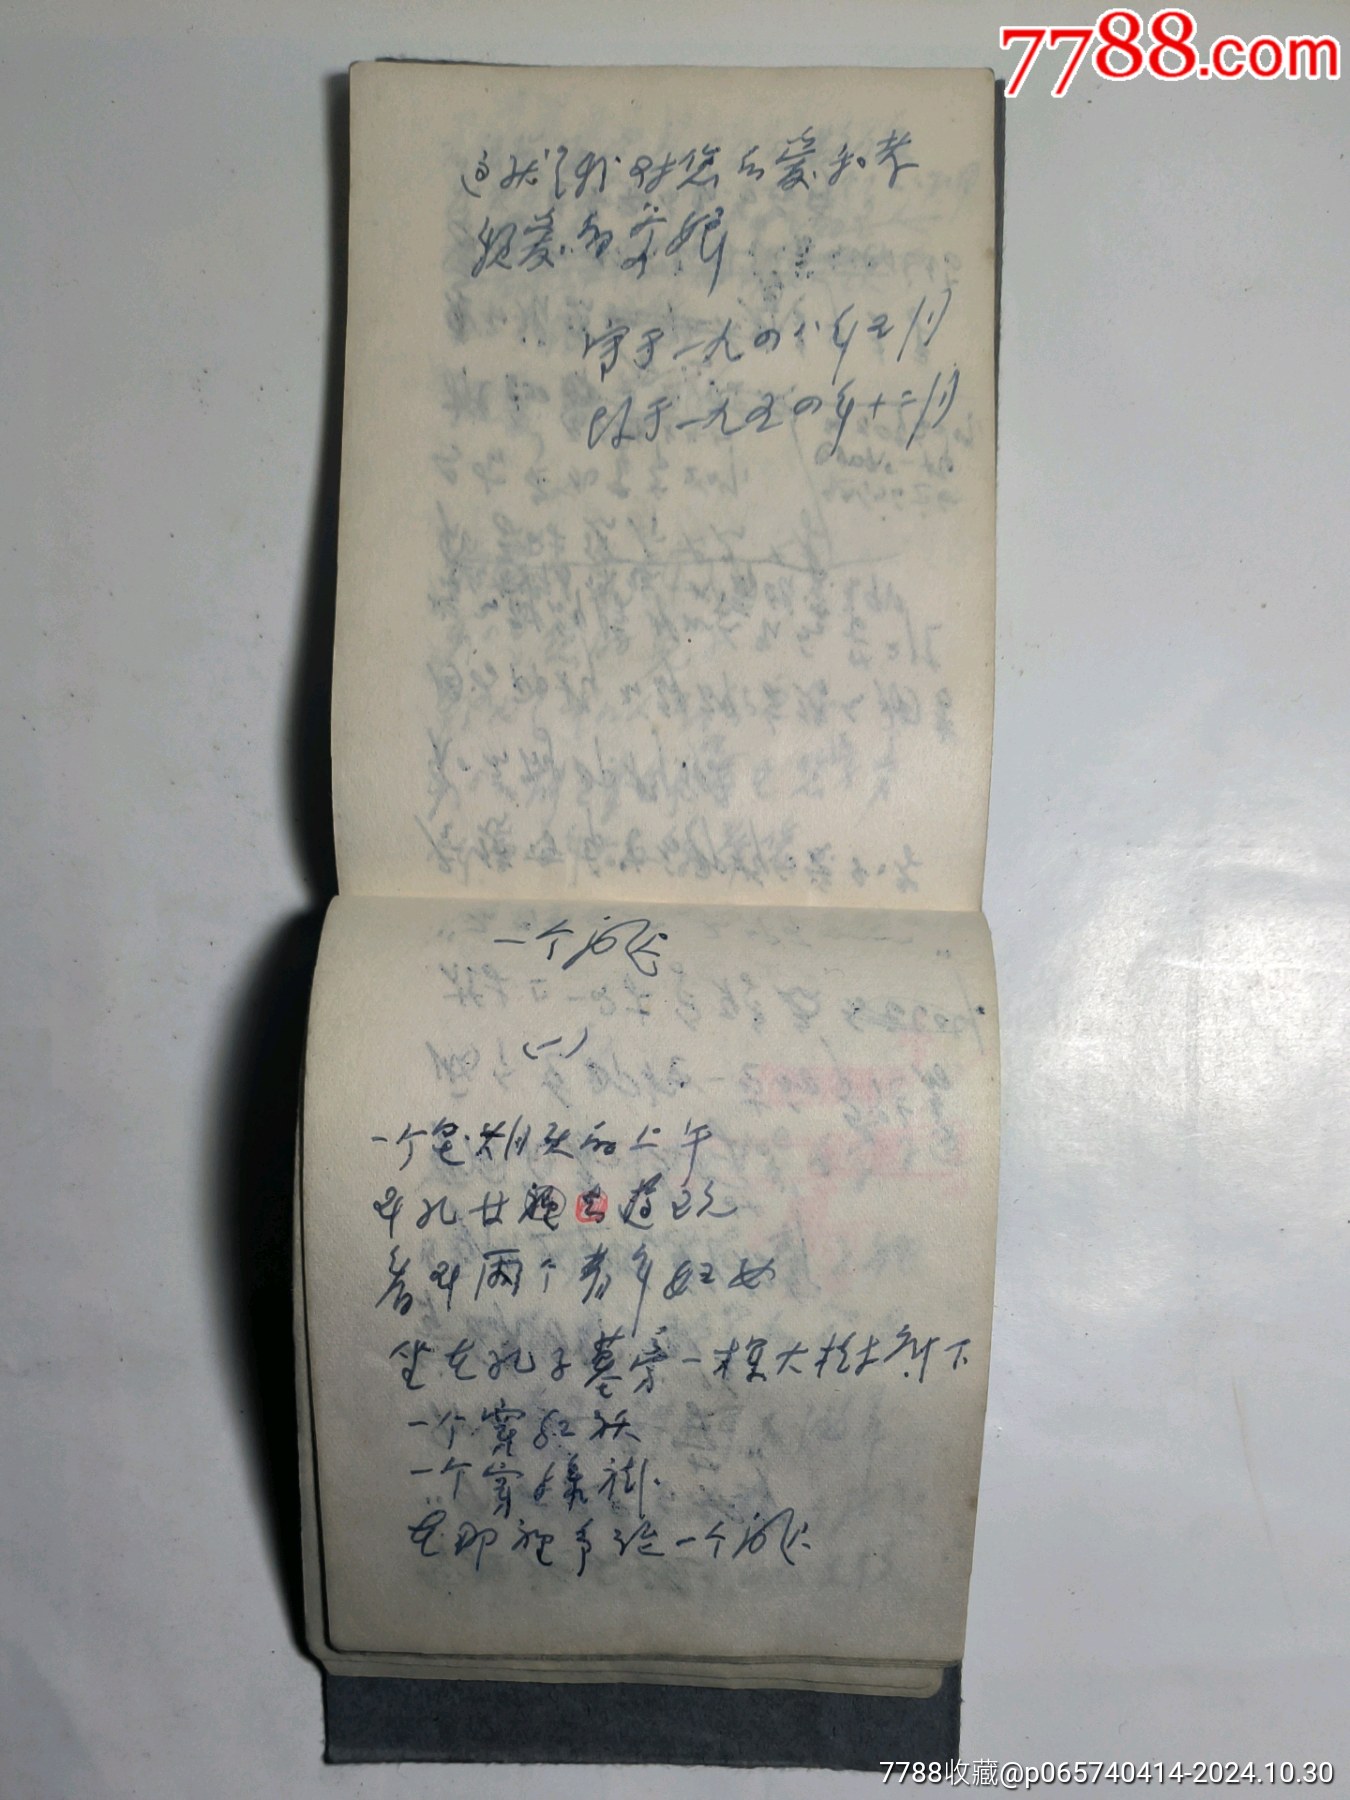 7788.com
这就是我对您的爱和孝
亲爱的爹娘
写于一九四八年五月
改于一九五四年十二月
一个问题
(一)
一个星期天的上午
到孔林里去游玩
看到两个青年妇女
坐在孔子墓旁一棵大松树下
一个穿红袄
一个穿绿褂
在那里争论一个问题
7788收藏@p065740414-2024.10.30